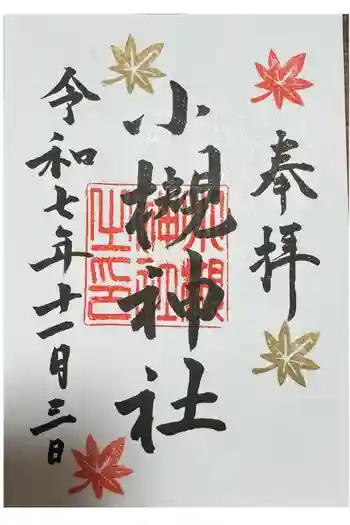 奉拝
小槻神社
小槻神社之印
令和七年十一月三日